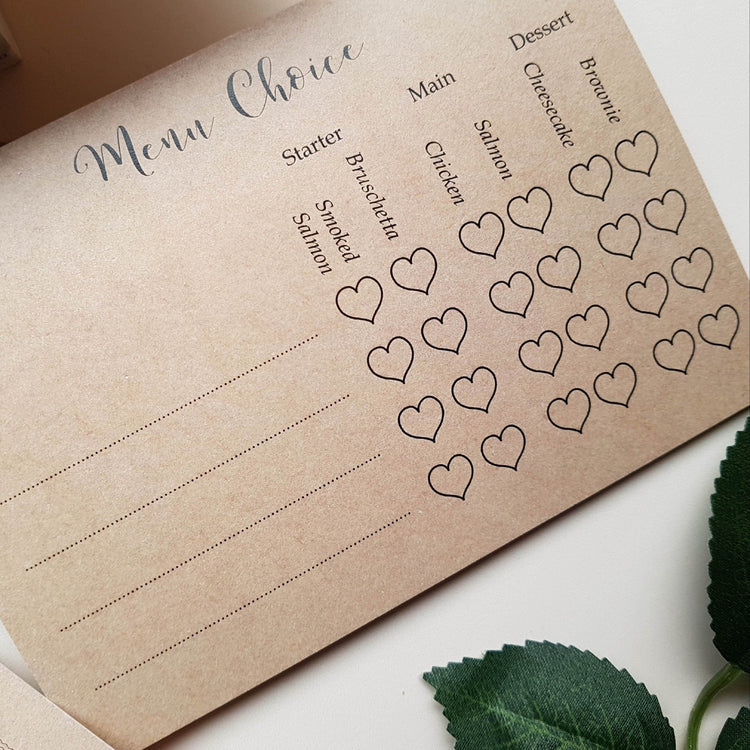 Menu Choice
Starter
Main
Dessert
Smoked
Salmon
Bruschetta
Chicken
Salmon
Cheesecake
Brownie